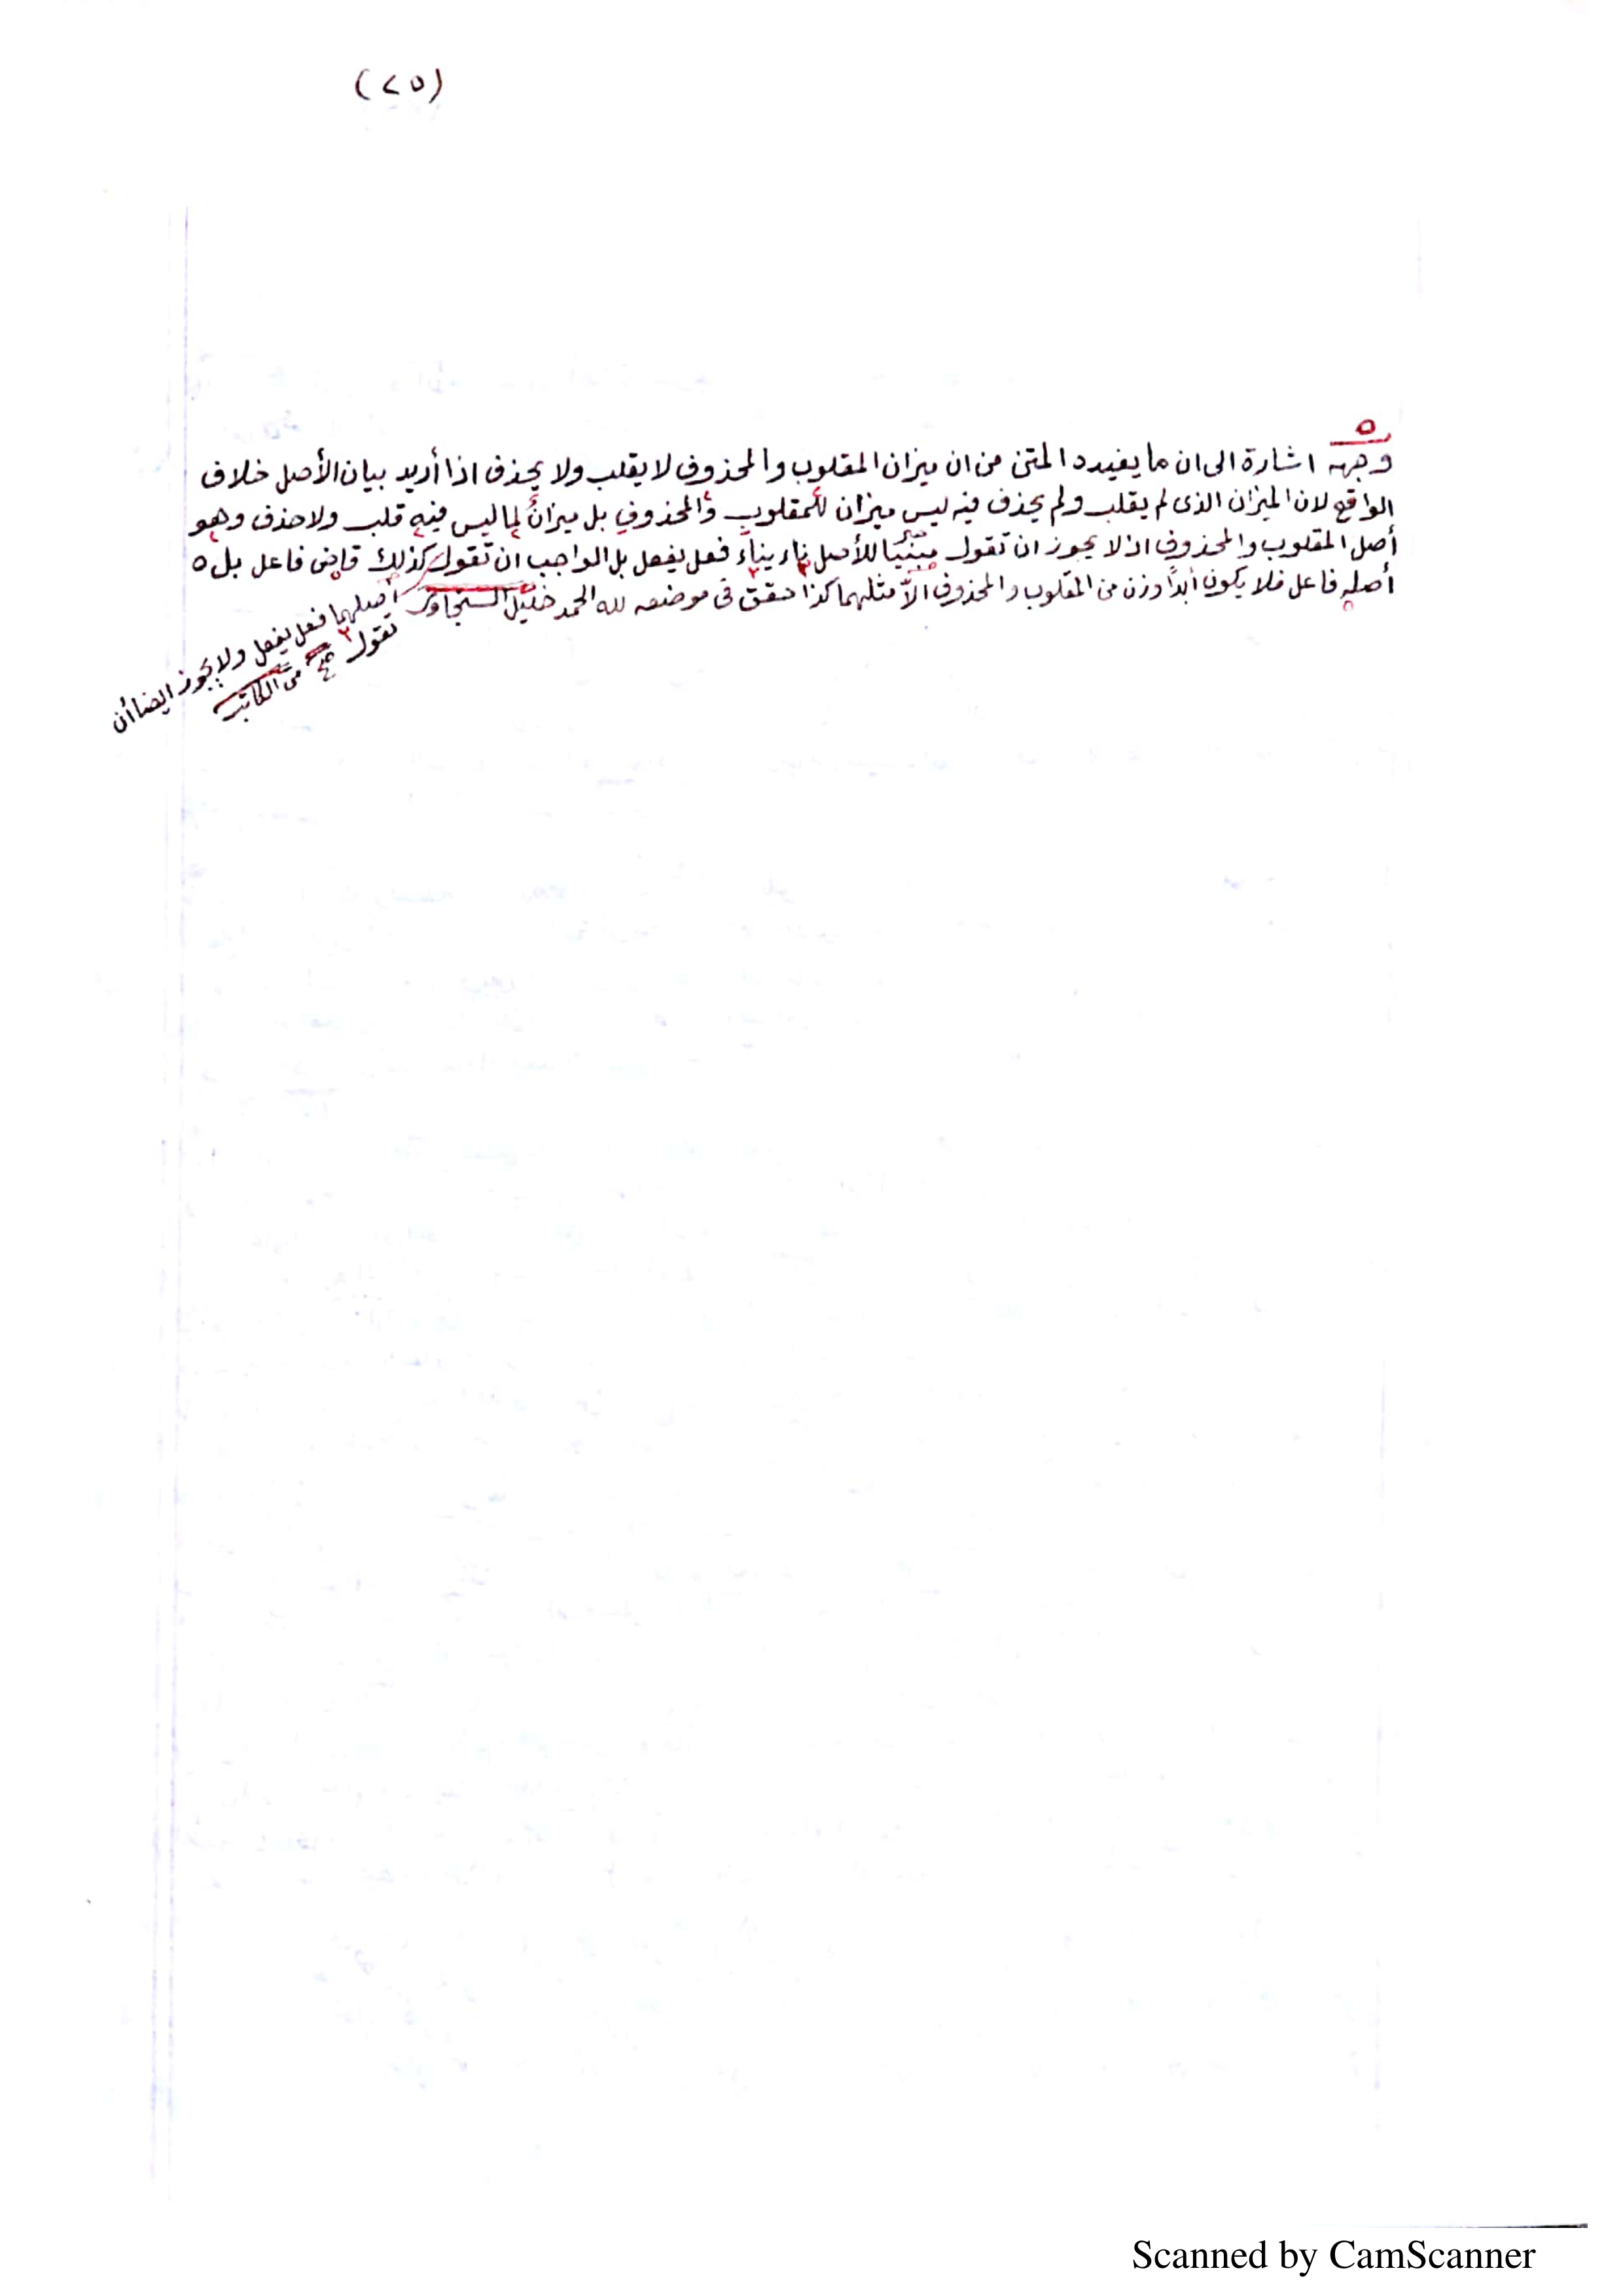 (٢٥)
٥
وجهه اشارة الى ان ما يفيده المتن من ان ميزان المقلوب والمحذوف لا يقلب ولا يحذف اذا أريد بيان الأصل خلاف
الواقع لان الميزان الذى لم يقلب ولم يحذف فيه ليس ميزان للمقلوب والمحذوف بل ميزانٌ لما ليس فيه قلب ولا حذف وهو
أصل المقلوب والمحذوف اذ لا يجوز ان تقول مبيّنا للأصل ناء يناء فعل يفعل بل الواجب ان تقول كذلك قاض فاعل بل ٥
أصله فاعل فلا يكون أبدًا وزن من المقلوب والمحذوف الّا مثلهما كذا حقق فى موضعه لله الحمد خليل
أصلهما فعل يفعل ولا يجوز ايضا أن
تقول صح
من الكاتب
Scanned by CamScanner